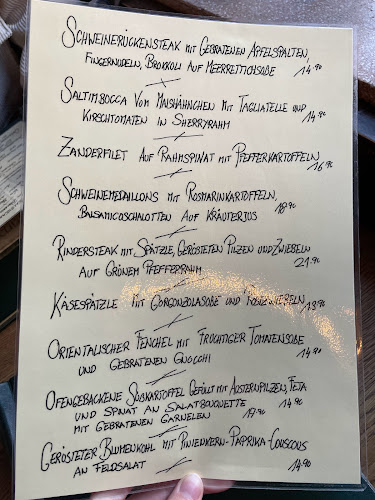 Schweinerückensteak mit Gebratenen Apfelspalten,
Fingernudeln, Brokkoli auf Meerrettichsoße 14.90
Saltimbocca vom Maishähnchen mit Tagliatelle und
Kirschtomaten in Sherryrahm 14.90
Zanderfilet auf Rahmspinat mit Pfefferkartoffeln
16.90
Schweinemedaillons mit Rosmarinkartoffeln,
Balsamicoschalotten auf Kräuterjus 18.90
Rindersteak mit Spätzle, Gerösteten Pilzen und Zwiebeln
auf Grünem Pfefferrahm 21.90
Käsespätzle mit Gorgonzolasoße und Röstzwiebeln 13.90
Orientalischer Fenchel mit Fruchtiger Tomatensoße
und Gebratenen Gnocchi 14.90
Ofengebackene Süßkartoffel Gefüllt mit Austernpilzen, Feta
und Spinat an Salatbouquette 14.90
mit Gebratenen Garnelen 19.90
Gerösteter Blumenkohl mit Pinienkern-Paprika-Couscous
an Feldsalat 14.90